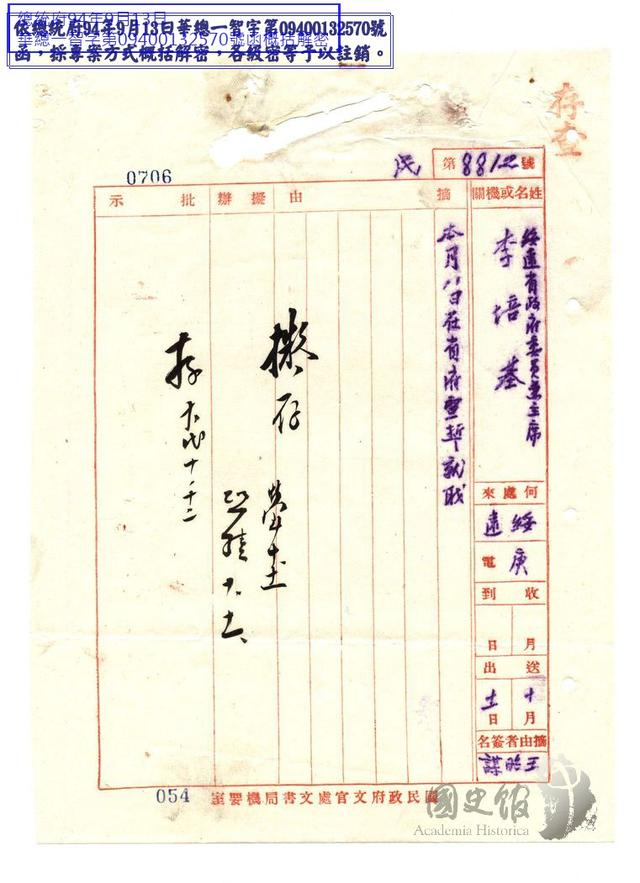 總統府94年9月13日
華總一智字第09400132570號函概括解密
依總統府94年9月13日華總一智字第09400132570號
函，採專案方式概括解密，各級密等予以註銷。
存查
0706
民
第8812號
姓名或機關
綏遠省政府委員兼主席
李培基
何處來
綏遠
庚電
收到
月 日
送出
十月 日
摘由者簽名
摘由
本月八日在省府宣誓就職
擬辦
擬存
批示
存
054
國民政府文官處文書局機要室
國史館
Academia Historica